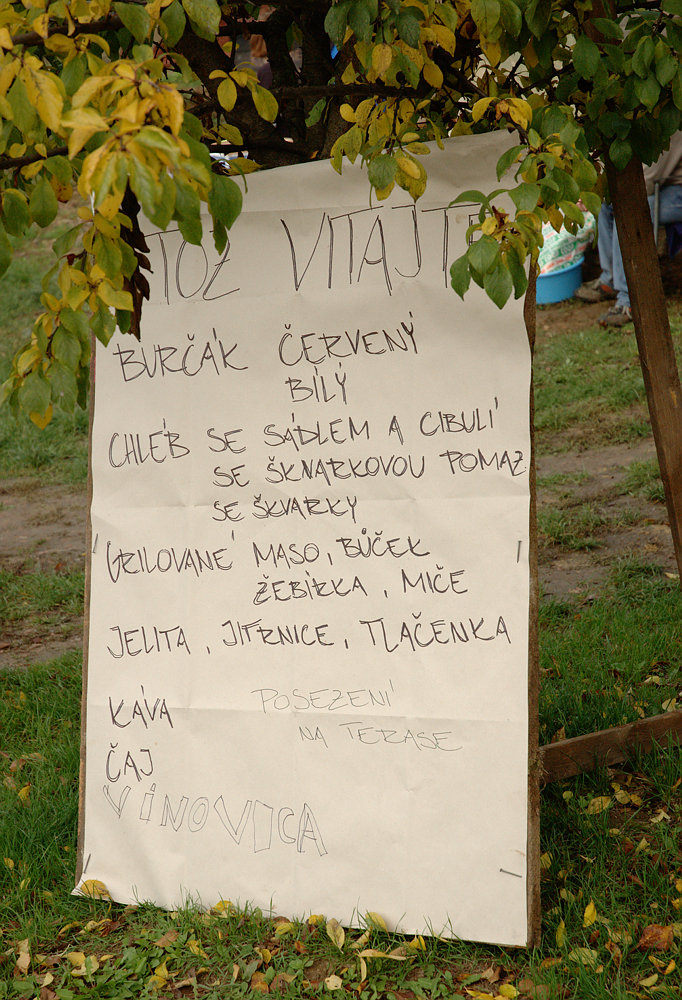 TOŽ VITAJTE
BURČÁK ČERVENÝ
BÍLÝ
CHLÉB SE SÁDLEM A CIBULÍ
SE ŠKNARKOVOU POMAZ
SE ŠKVARKY
GRILOVANÉ MASO, BŮČEK
ŽEBÍRKA, MIČE
JELITA, JITRNICE, TLAČENKA
KÁVA POSEZENÍ
NA TERASE
ČAJ
VINOVICA